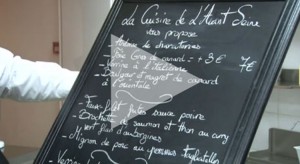 La Cuisine de l'Avant Seine
vous propose
de charcuteries
Foie Gras de canard = + 3€ 7€
- Verrine à l'italienne
- Boulgour et magret de canard
à l'orientale
- Faux-filet frites sauce poivre
- Brochette de saumon et thon au curry
vert flan d'aubergines
- Mignon de porc au pruneau tagliatelles